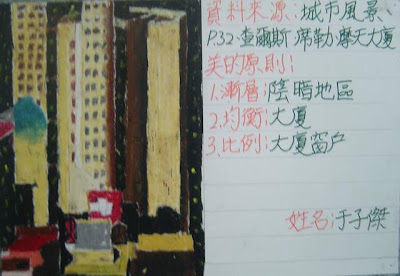 資料來源:城市風景、
P.32.查爾斯 席勒.摩天大廈
美的原則:
1.漸層:陰暗地區
2.均衡:大廈
3.比例:大廈窗戶
姓名:于子傑